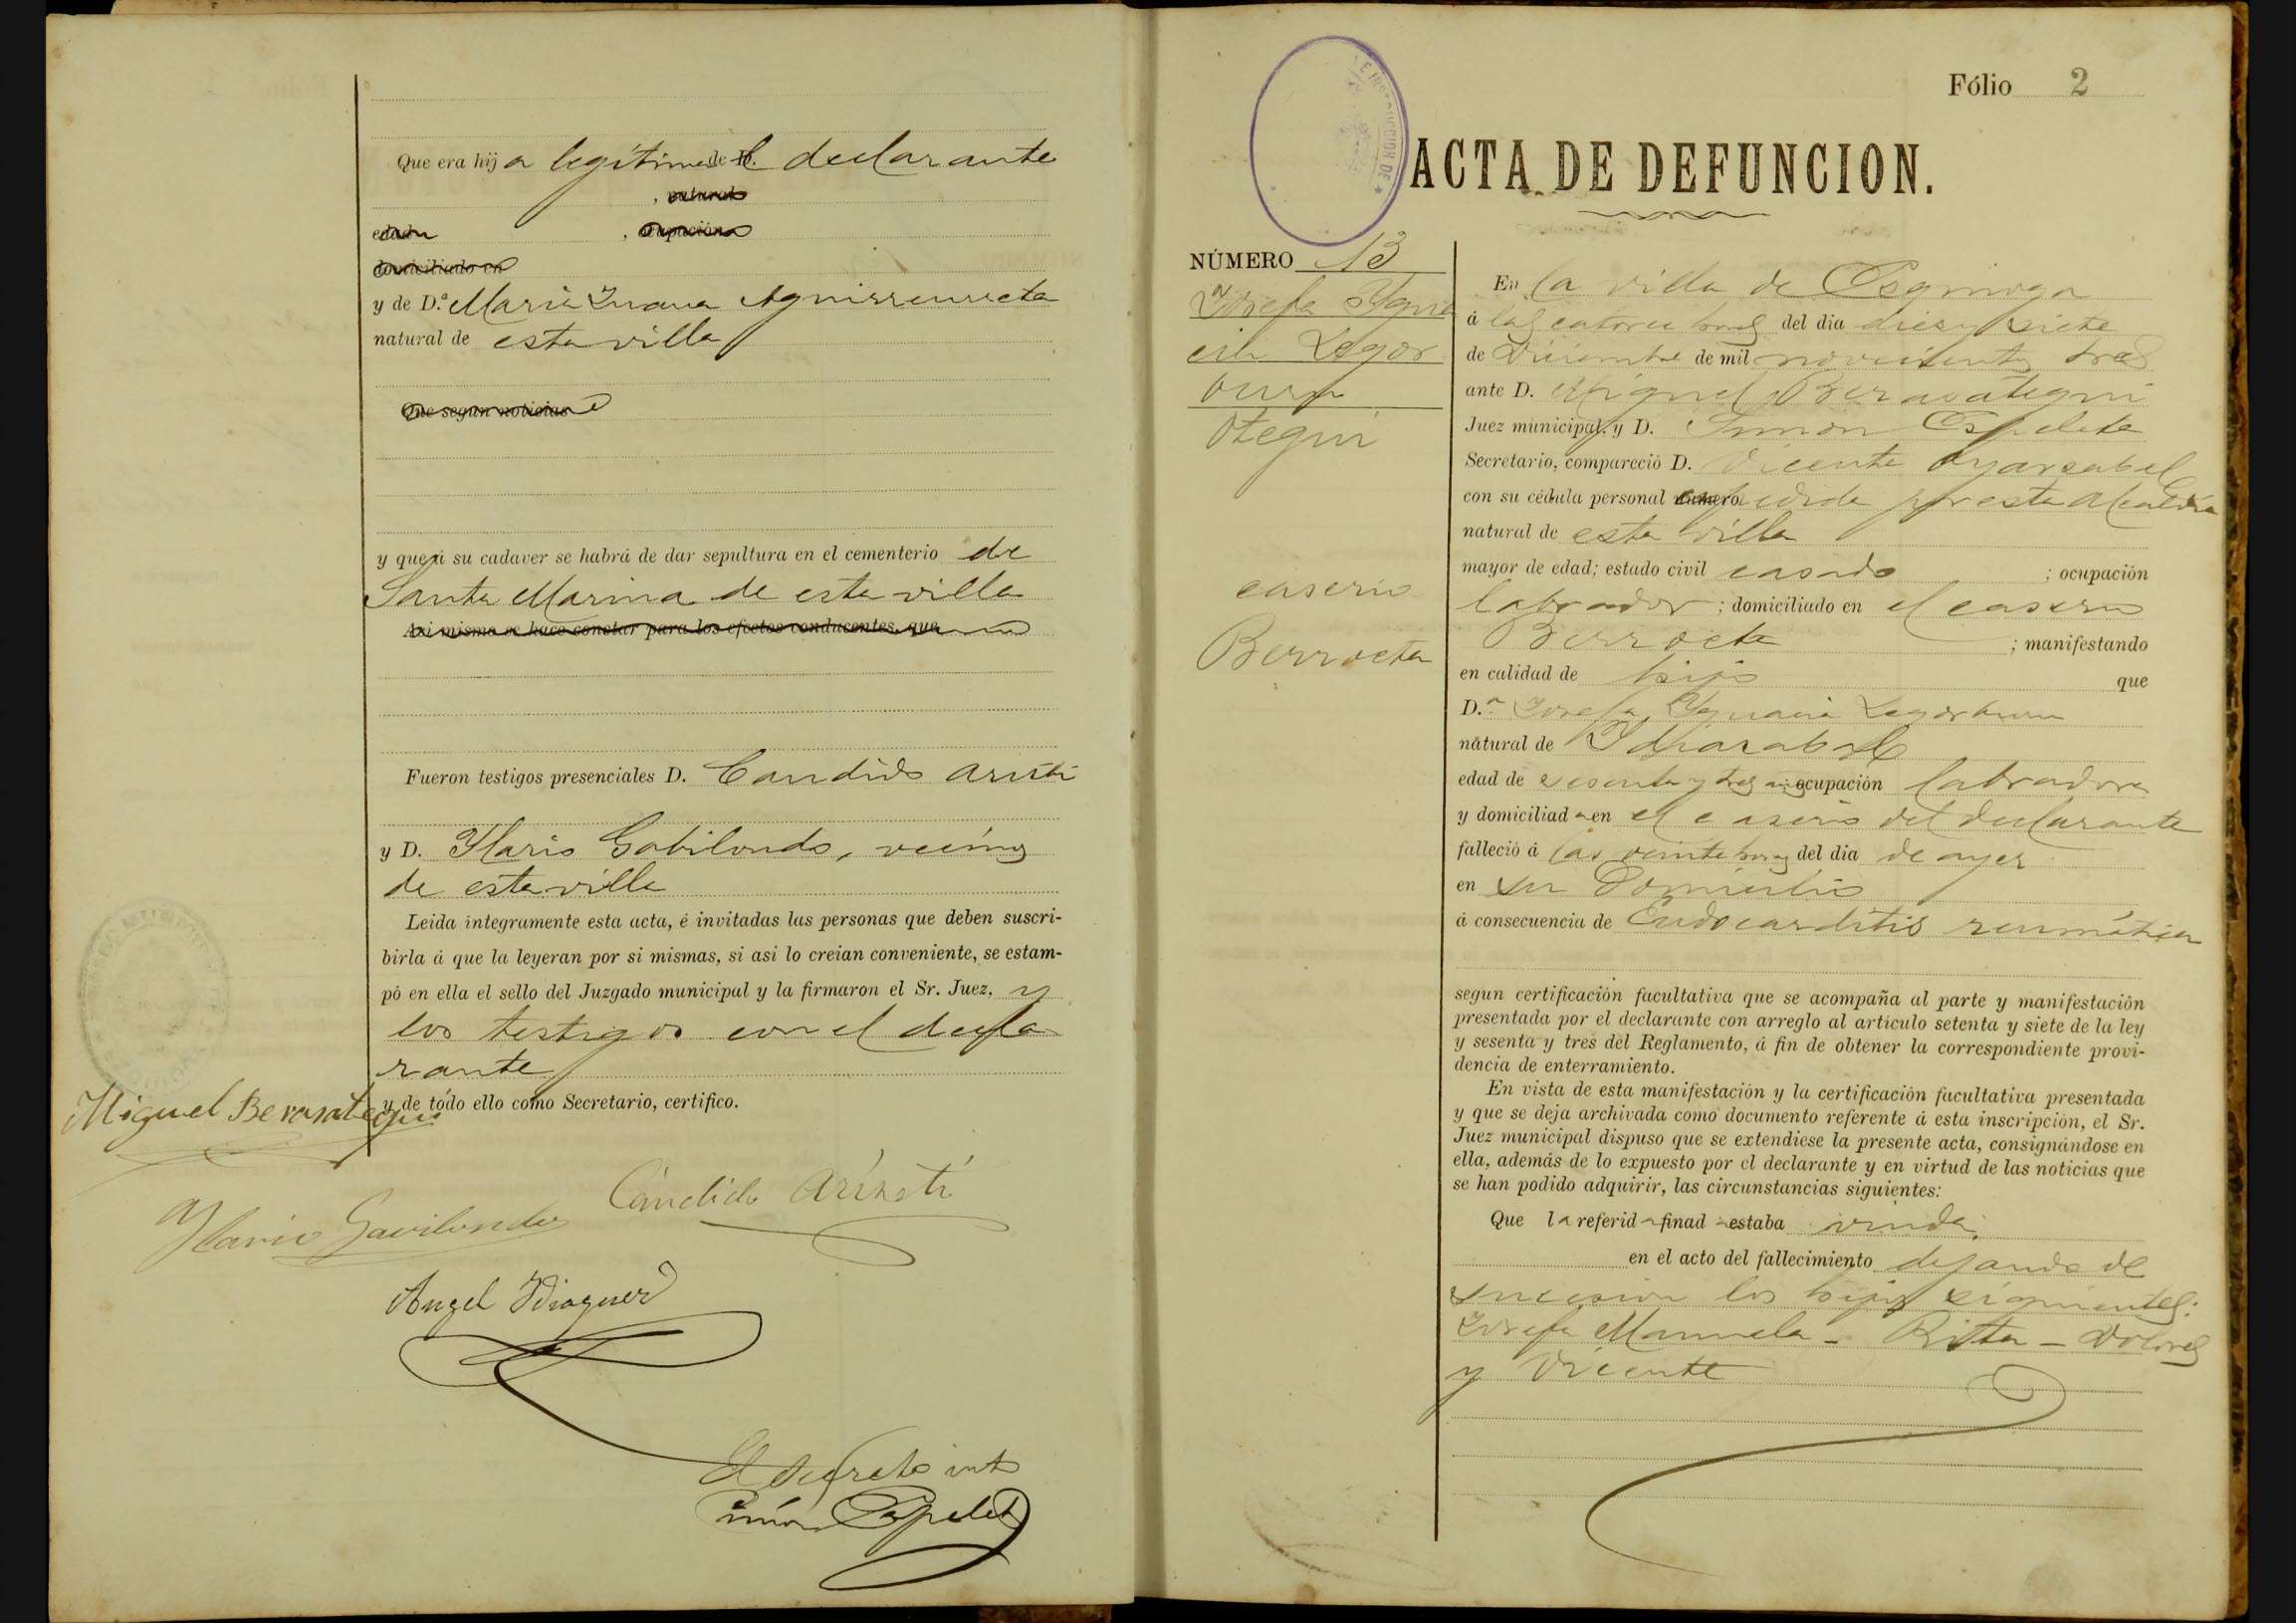 Que era hija legítima del declarante
y de D.ª Maria Juana Aguirreurreta
natural de esta villa
y que á su cadaver se habrá de dar sepultura en el cementerio de
Santa Marina de esta villa
Asi mismo se hace constar para los efectos conducentes, que
Fueron testigos presenciales D. Candido Aristi
y D. Ylario Gabilondo, vecinos
de esta villa
Leida integramente esta acta, é invitadas las personas que deben suscri-
birla á que la leyeran por si mismas, si asi lo creian conveniente, se estam-
pó en ella el sello del Juzgado municipal y la firmaron el Sr. Juez, y
los testigos con el decla
rante
y de todo ello como Secretario, certifico.
Miguel Berasategui
Cándido Aristi
Ylario Gavilondo
Angel Ydiaquez
El Secreto into
Simón Espeleta
Fólio 2
ACTA DE DEFUNCION.
NÚMERO 13
Josefa Ygna
cia Legor
buru
Otegui
caserio
Berroeta
En la villa de Ezquioga
á las catorce horas del dia diez y siete
de Diciembre de mil novecientos tres
ante D. Miguel Berasategui
Juez municipal, y D. Simon Espeleta
Secretario, compareció D. Vicente Oyarzabal
con su cédula personal expedida por esta Alcaldia
natural de esta villa
mayor de edad; estado civil casado ; ocupación
labrador ; domiciliado en el caserio
Berroeta ; manifestando
en calidad de hijo que
D.ª Josefa Ygnacia Legorburu
natural de Ydiazabal
edad de sesenta y tres años ocupación labradora
y domiciliada en el caserio del declarante
falleció á las veinte horas del dia de ayer
en su domicilio
á consecuencia de Endocarditis reumática
segun certificación facultativa que se acompaña al parte y manifestación
presentada por el declarante con arreglo al articulo setenta y siete de la ley
y sesenta y tres del Reglamento, á fin de obtener la correspondiente provi-
dencia de enterramiento.
En vista de esta manifestación y la certificación facultativa presentada
y que se deja archivada como documento referente á esta inscripción, el Sr.
Juez municipal dispuso que se extendiese la presente acta, consignándose en
ella, además de lo expuesto por el declarante y en virtud de las noticias que
se han podido adquirir, las circunstancias siguientes:
Que la referida finada estaba viuda,
en el acto del fallecimiento dejando de
sucesion los hijos siguientes:
Josefa Manuela - Ritta - Dolores
y Vicente